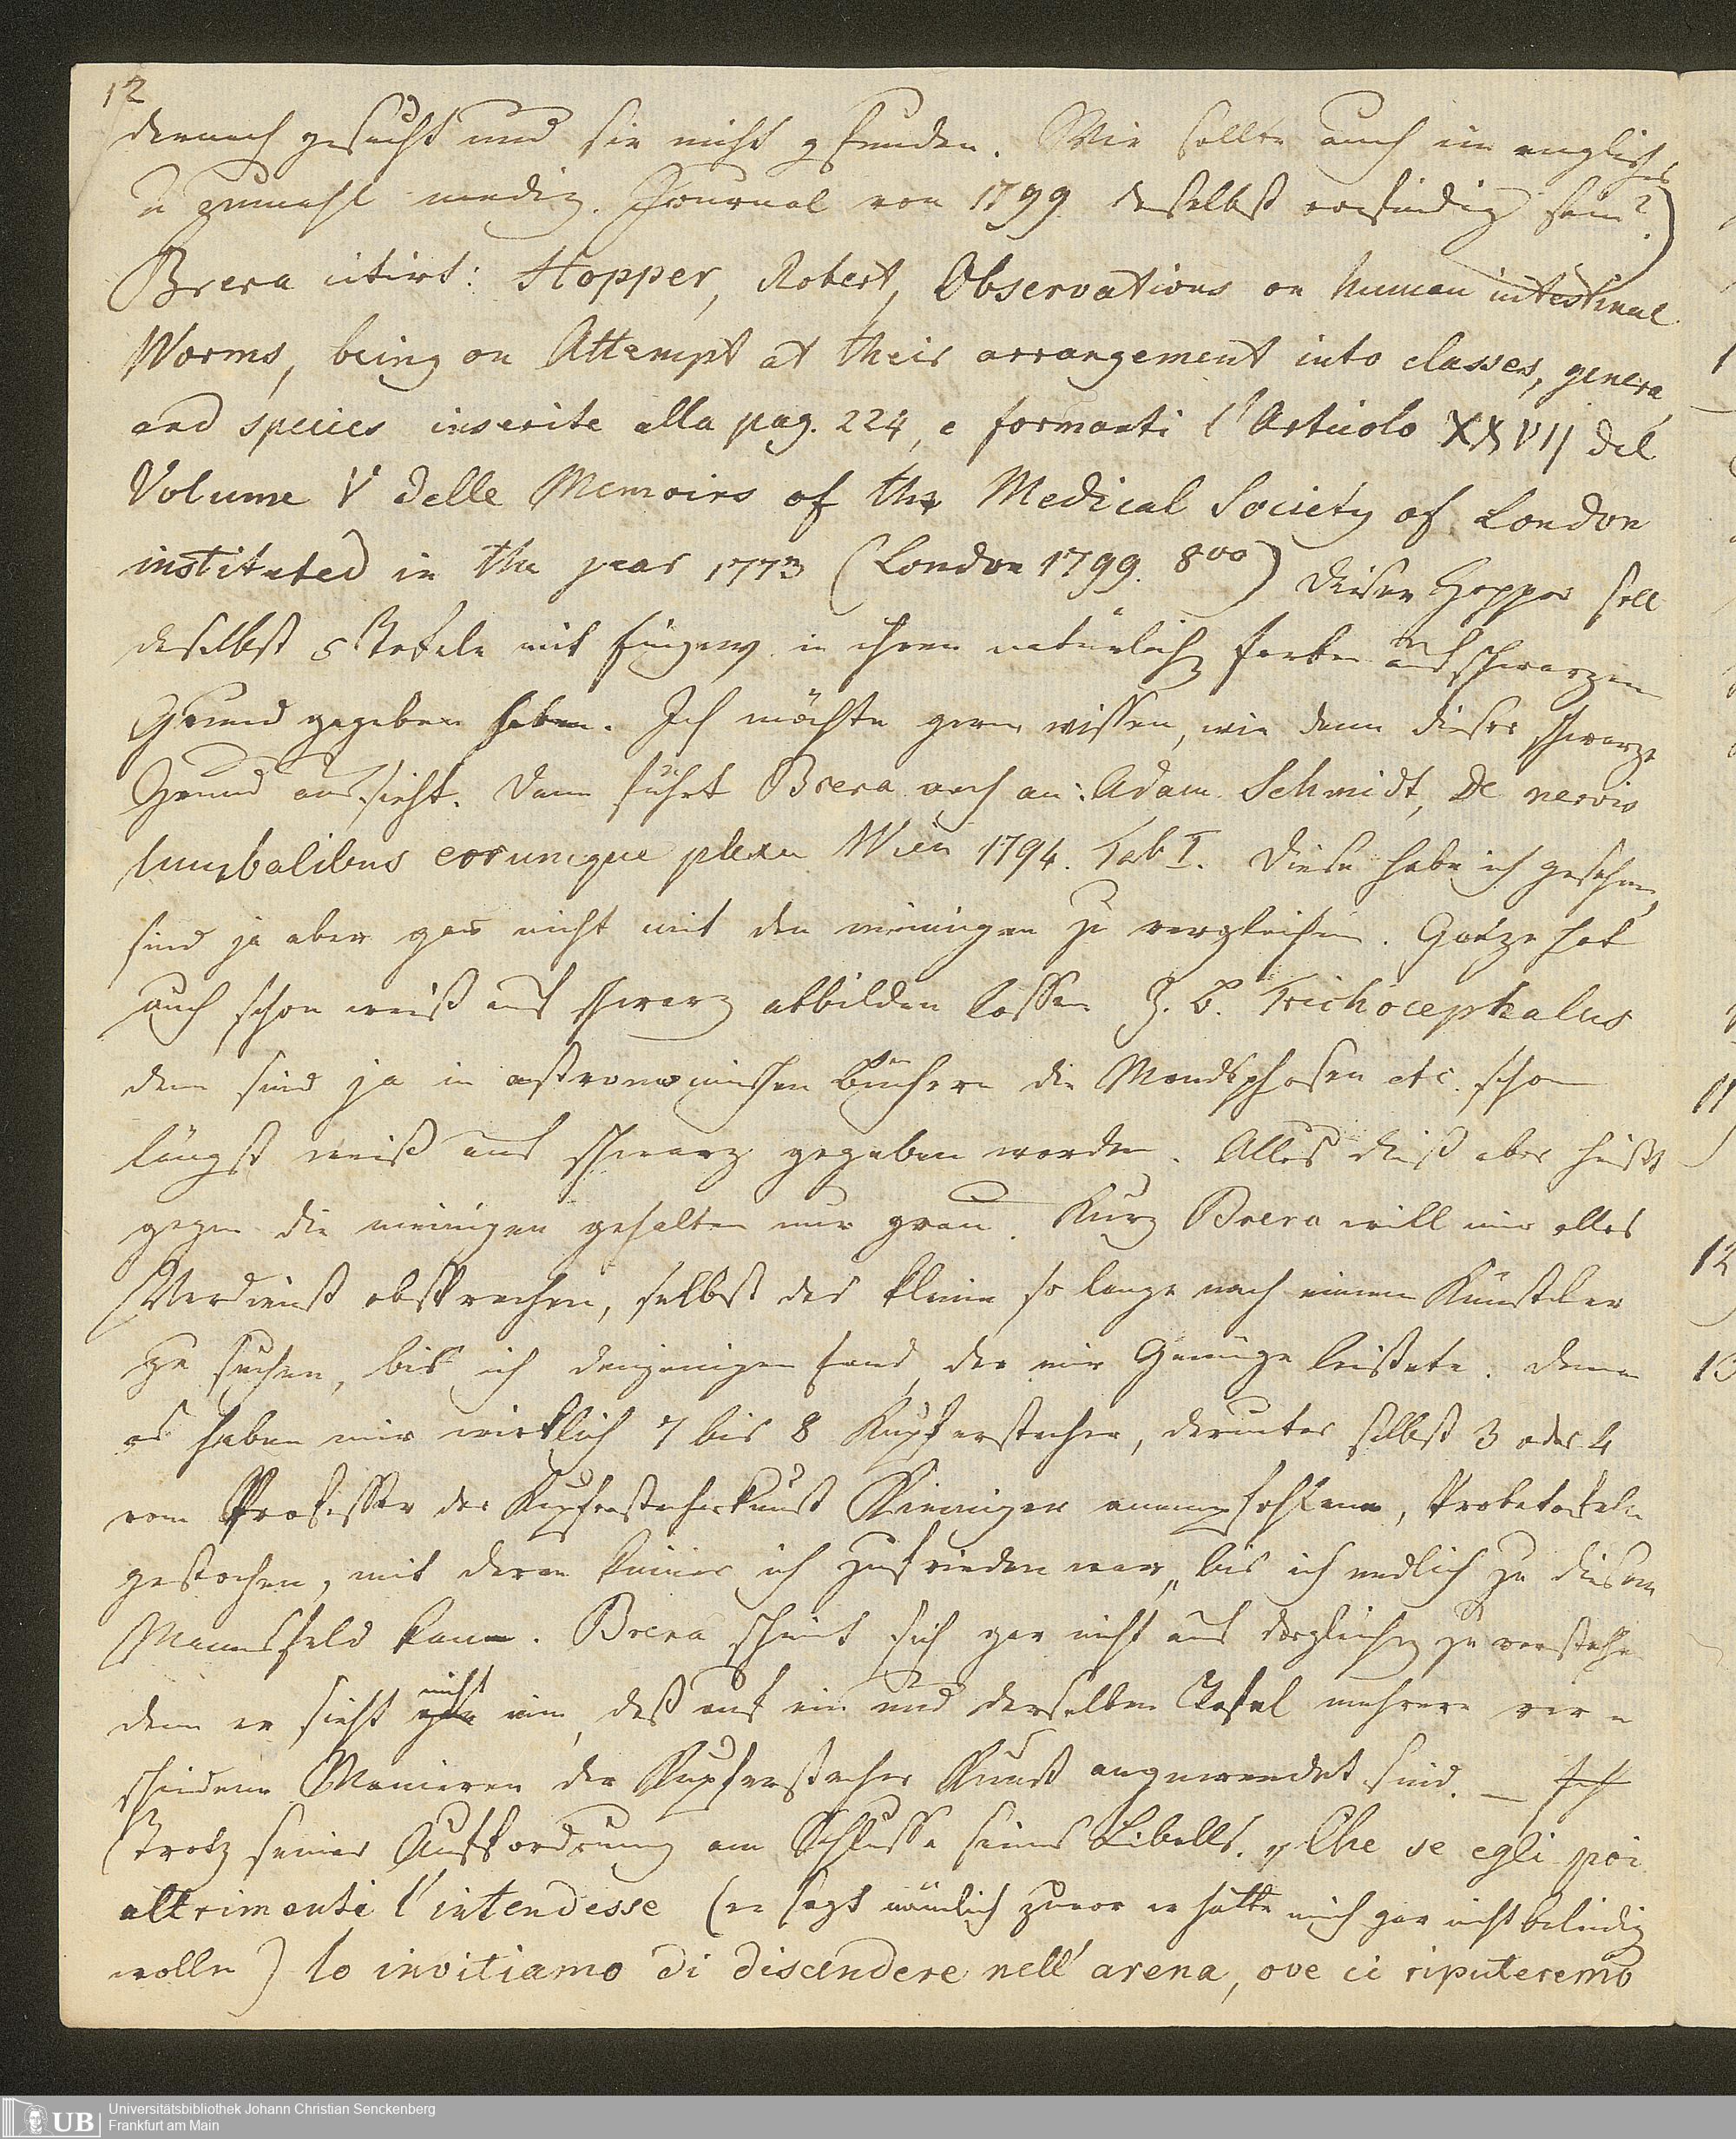 12
darnach gesucht und sie nicht gefunden. Wie sollte auch ein englisches
u zumahl mediz. Journal von 1799 daselbst vorfindig sein?)
Brera citirt: Hopper, Robert, Observations on human intestinal
Worms, being on Attempt at their arrangement into classes, genera,
and species inserite alla pag. 224, e formanti l'Articolo XXVII del
Volume V delle Memoirs of the Medical Society of London
instituted in the year 1773 (London 1799. 8vo) Dieser Hopper soll
daselbst 5 Tafeln mit Eingew. in ihren natürlich Farben auf schwarzem
Grund gegeben haben. Ich möchte gern wissen, wie denn dieser schwarze
Grund aussieht. Dann führt Brera noch an: Adam Schmidt, De nervis
lumbalibus eorumque plexu Wien 1794. Tab I. Diese habe ich gesehen,
sind ja aber gar nicht mit den meinigen zu vergleichen. Goeze hat
auch schon weiß auf schwarz abbilden lassen Z. B. Trichocephalus
dann sind ja in astronomischen Büchern die Mondsphasen etc. schon
längst weiß auf schwarz gegeben worden. Alles dieß aber heißt
gegen die meinigen gehalten nur grau. Kurz Brera will mir alles
Verdienst absprechen, selbst das kleine so lange nach einem Künstler
zu suchen, bis ich denjenigen fand, der mir Genüge leistete. Denn
es haben mir wirklich 7 bis 8 Kupferstecher, darunter selbst 3 oder 4
vom Professor der Kupferstecherkunst anempfohlene, Probetafeln
gestochen, mit deren keiner ich zufrieden war, bis ich endlich zu diesem
Mannsfeld kam. Brera scheint sich gar nicht auf dergleichen zu verstehen
denn er sieht nicht ein, daß auf ein und derselben Tafel mehrere ver-
schiedene Manieren der Kupferstecher Kunst angewendet sind. — Ich
Trotz seiner Aufforderung am Schlusse seines Libells. „Che se egli poi
altrimenti l'intendesse (er sagt nämlich zuvor er hätte mich gar nicht beleidig
wollen) lo invitiamo di discendere nell' arena, ove ci riputeremo
UB Universitätsbibliothek Johann Christian Senckenberg
Frankfurt am Main